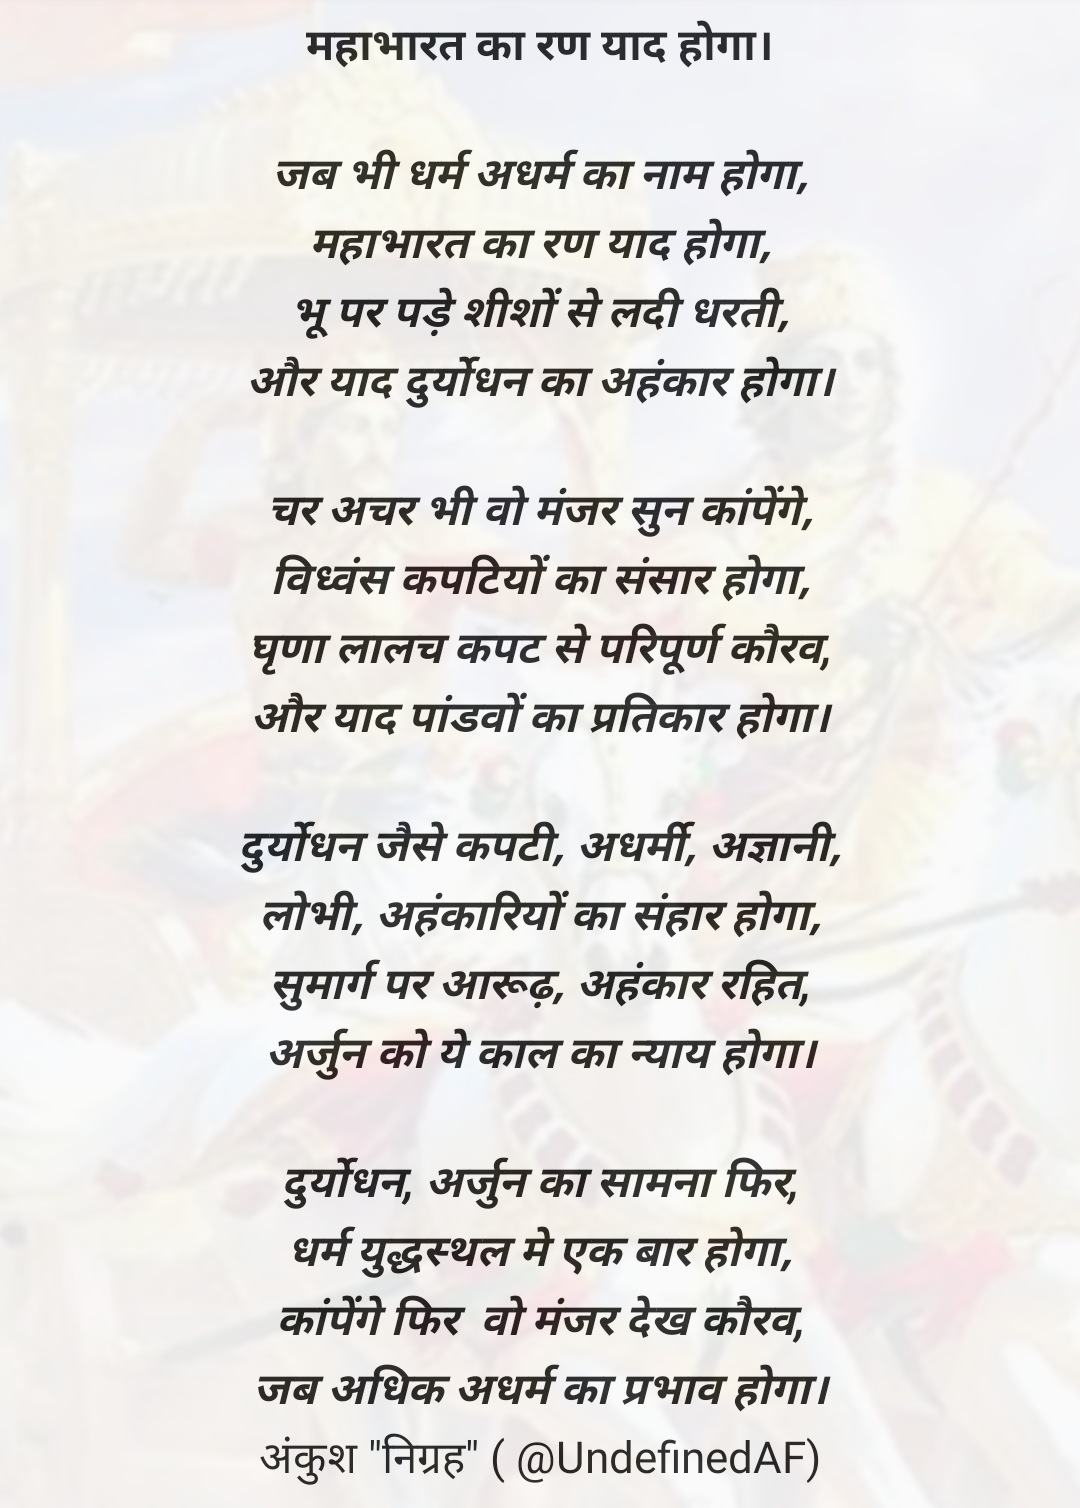 महाभारत का रण याद होगा।
जब भी धर्म अधर्म का नाम होगा,
महाभारत का रण याद होगा,
भू पर पड़े शीशों से लदी धरती,
और याद दुर्योधन का अहंकार होगा।
चर अचर भी वो मंजर सुन कांपेंगे,
विध्वंस कपटियों का संसार होगा,
घृणा लालच कपट से परिपूर्ण कौरव,
और याद पांडवों का प्रतिकार होगा।
दुर्योधन जैसे कपटी, अधर्मी, अज्ञानी,
लोभी, अहंकारियों का संहार होगा,
सुमार्ग पर आरूढ़, अहंकार रहित,
अर्जुन को ये काल का न्याय होगा।
दुर्योधन, अर्जुन का सामना फिर,
धर्म युद्धस्थल मे एक बार होगा,
कांपेंगे फिर वो मंजर देख कौरव,
जब अधिक अधर्म का प्रभाव होगा।
अंकुश "निग्रह" ( @UndefinedAF)